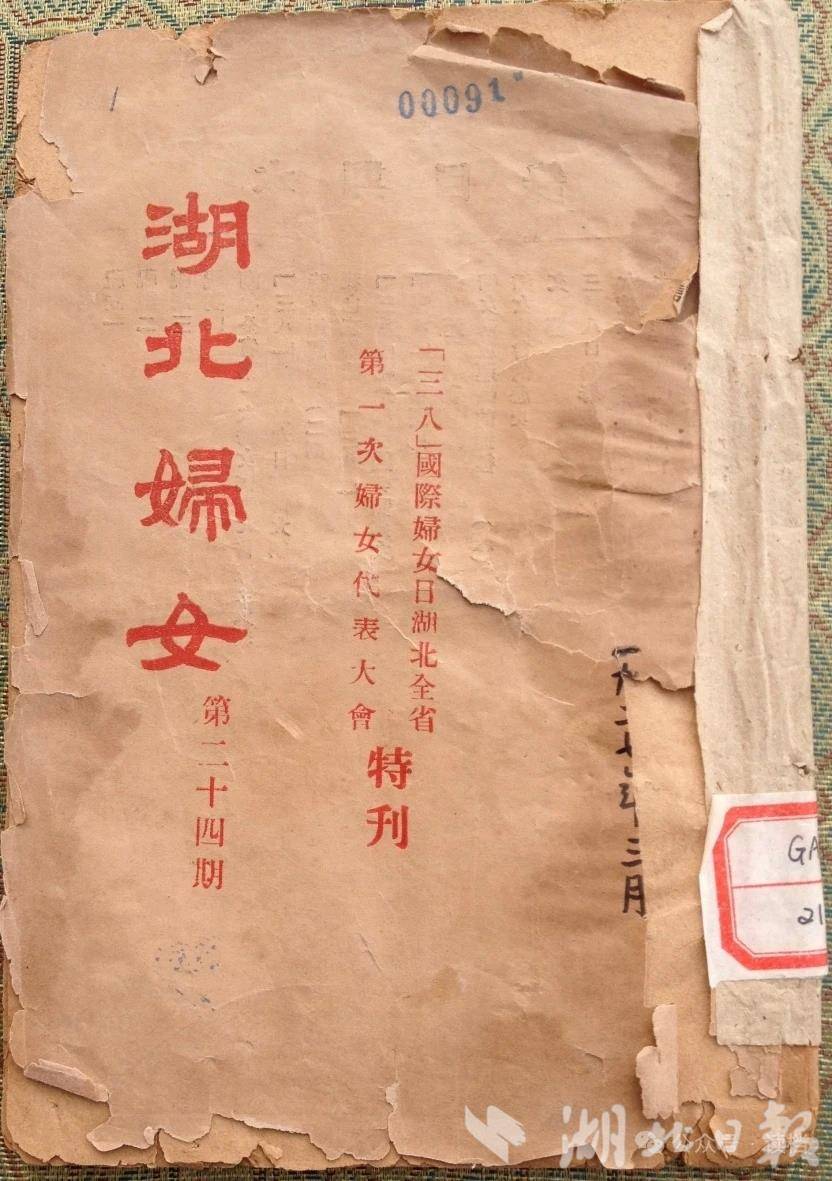 00091
「三八」國際婦女日湖北全省
第一次婦女代表大會
特刊
湖北婦女
第二十四期
一九二七年三月
GA
21
湖北日報
公众号